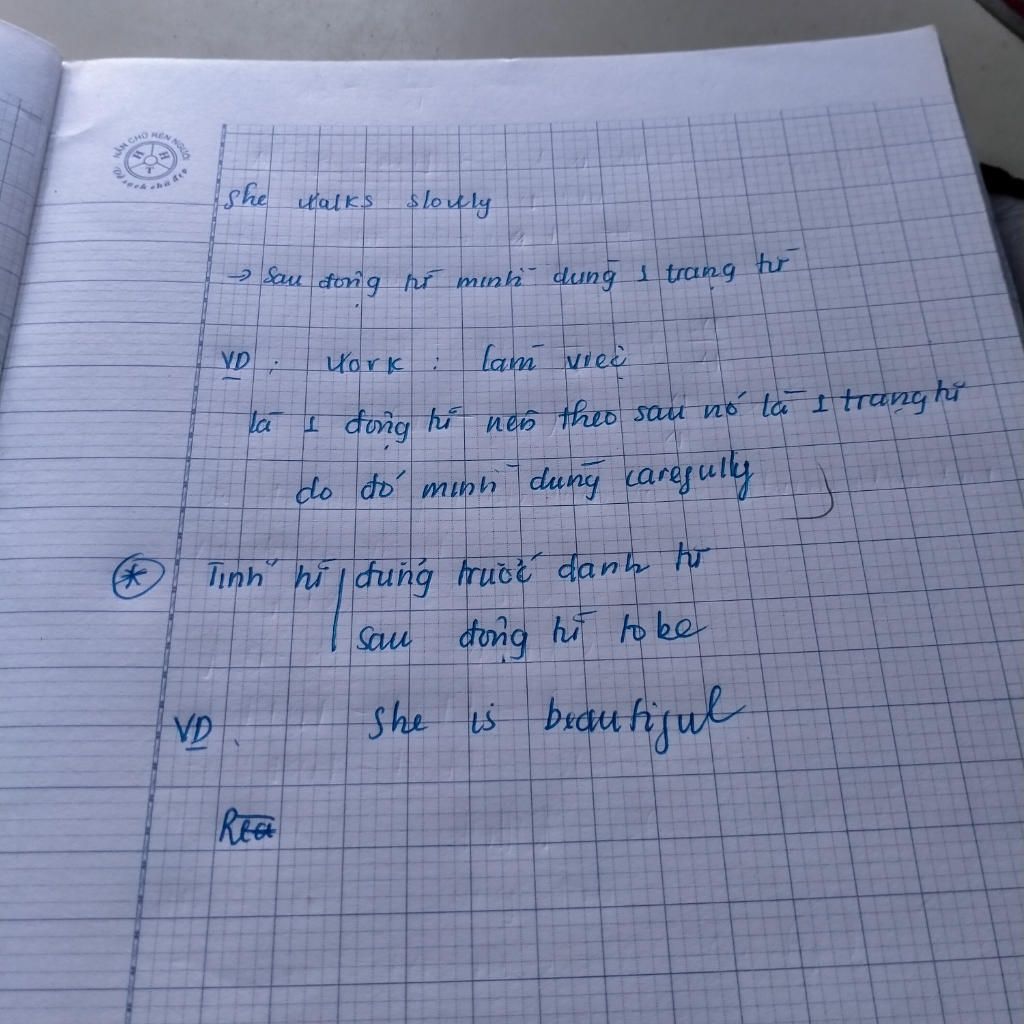 NẮN CHỮ RÈN NGƯỜI
H H T
Vở sạch chữ đẹp
She walks slowly
→ Sau động từ mình dùng 1 trạng từ
VD : Work : làm việc
là 1 động từ nên theo sau nó là 1 trạng từ
do đó mình dùng carefully
* Tính từ đứng trước danh từ
sau động từ to be
VD : She is beautiful